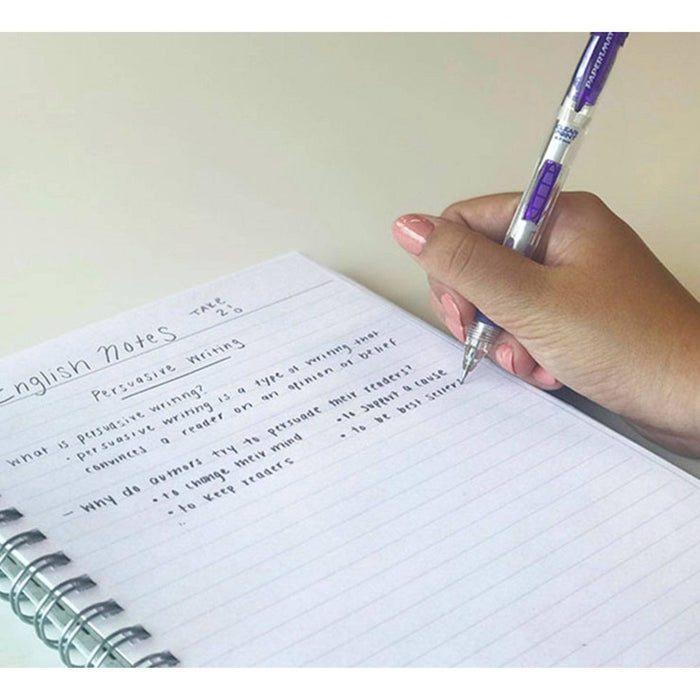 English notes
TAKE
2.0
Persuasive writing
What is persuasive writing?
• persuasive writing is a type of writing that
convinces a reader on an opinion or belief
– Why do authors try to persuade their readers?
• to change their mind
• to keep readers
• to support a cause
• to be best sellers
PAPERMATE
CLEAR
POINT